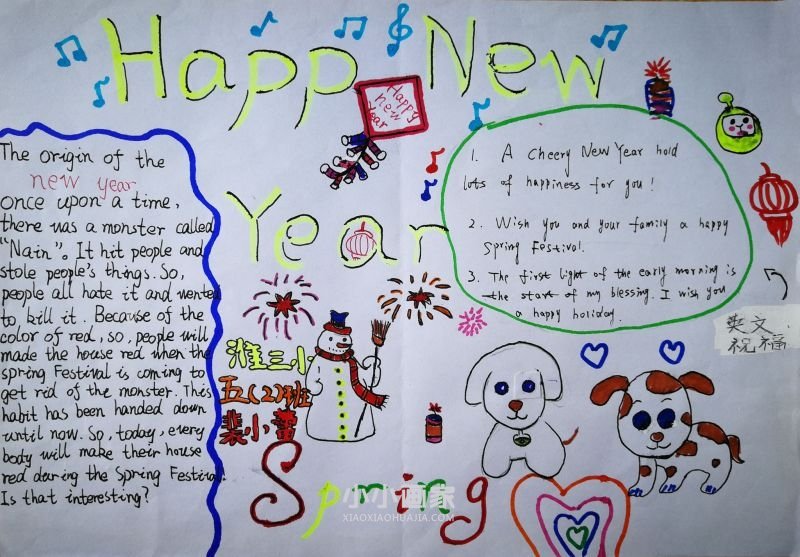 Happ New
Year
Happy
new
Year
The origin of the
new year
once upon a time,
there was a monster called
"Nain". It hit people and
stole people's things. So,
people all hate it and wented
to kill it. Because of the
color of red, so, people will
made the house red when the
spring Festival is coming to
get rid of the monster. This
habit has been handed down
until now. So, today, every
body will make their house
red during the Spring Festival.
Is that interesting?
1. A Cheery New Year hold
lots of happiness for you!
2. Wish you and your family a happy
Spring Festival.
3. The first light of the early morning is
the start of my blessing. I wish you
a happy holiday.
英文
祝福
淮三小
五(2)班
裴小蕾
Spring
小小画家
XIAOXIAOHUAJIA.COM